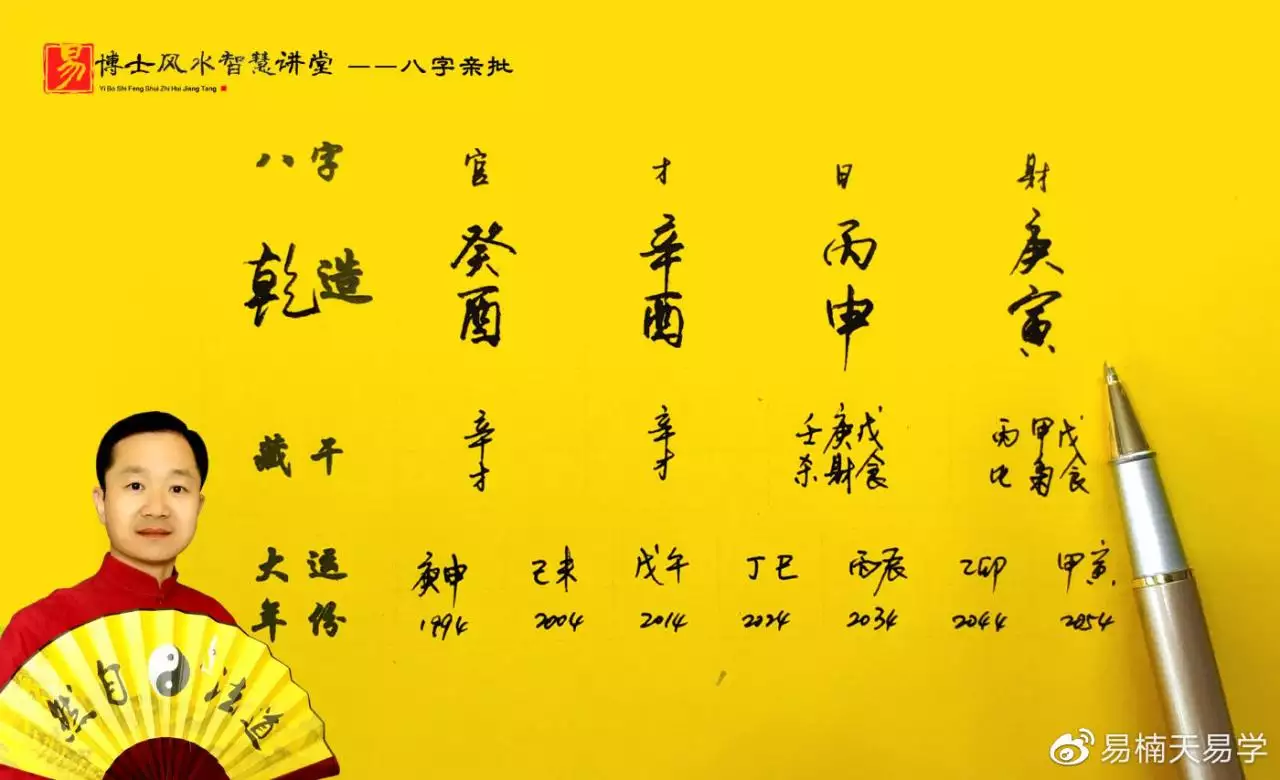 易 博士风水智慧讲堂 ——八字亲批
Yi Bo Shi Feng Shui Zhi Hui Jiang Tang
八字 官 才 日 财
乾造 癸 辛 丙 庚
酉 酉 申 寅
藏干 辛 辛 壬 庚 戊 丙 甲 戊
才 才 杀 财 食 比 枭 食
大运 庚申 己未 戊午 丁巳 丙辰 乙卯 甲寅
年份 1994 2004 2014 2024 2034 2044 2054
然自法道
易楠天易学